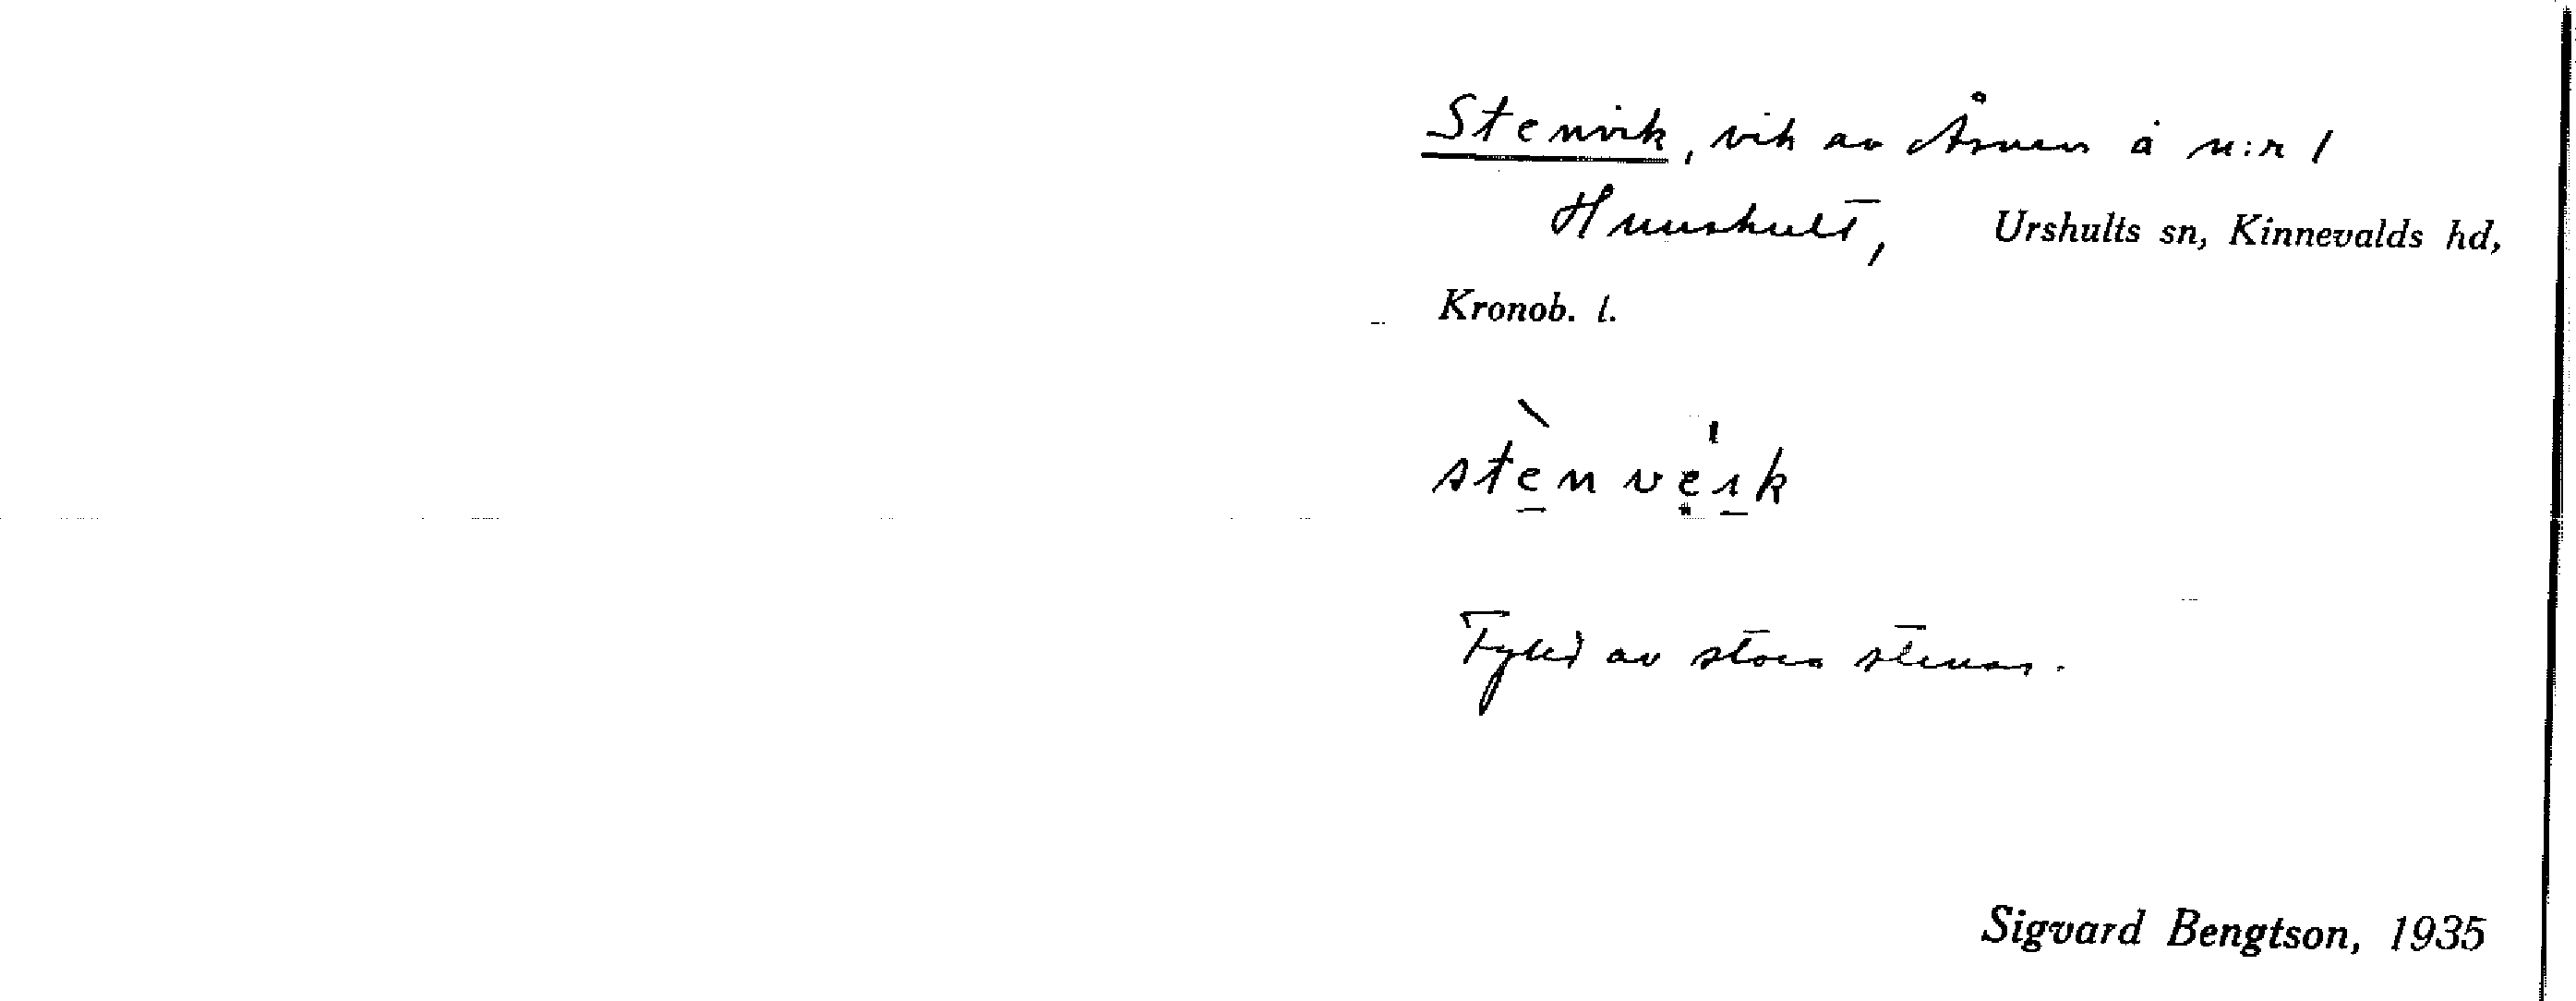 Stenvik, vik av Åsnen å n:r 1
Hunshult, Urshults sn, Kinnevalds hd,
Kronob. l.
stènvèık
Fylld av stora stenar.
Sigvard Bengtson, 1935